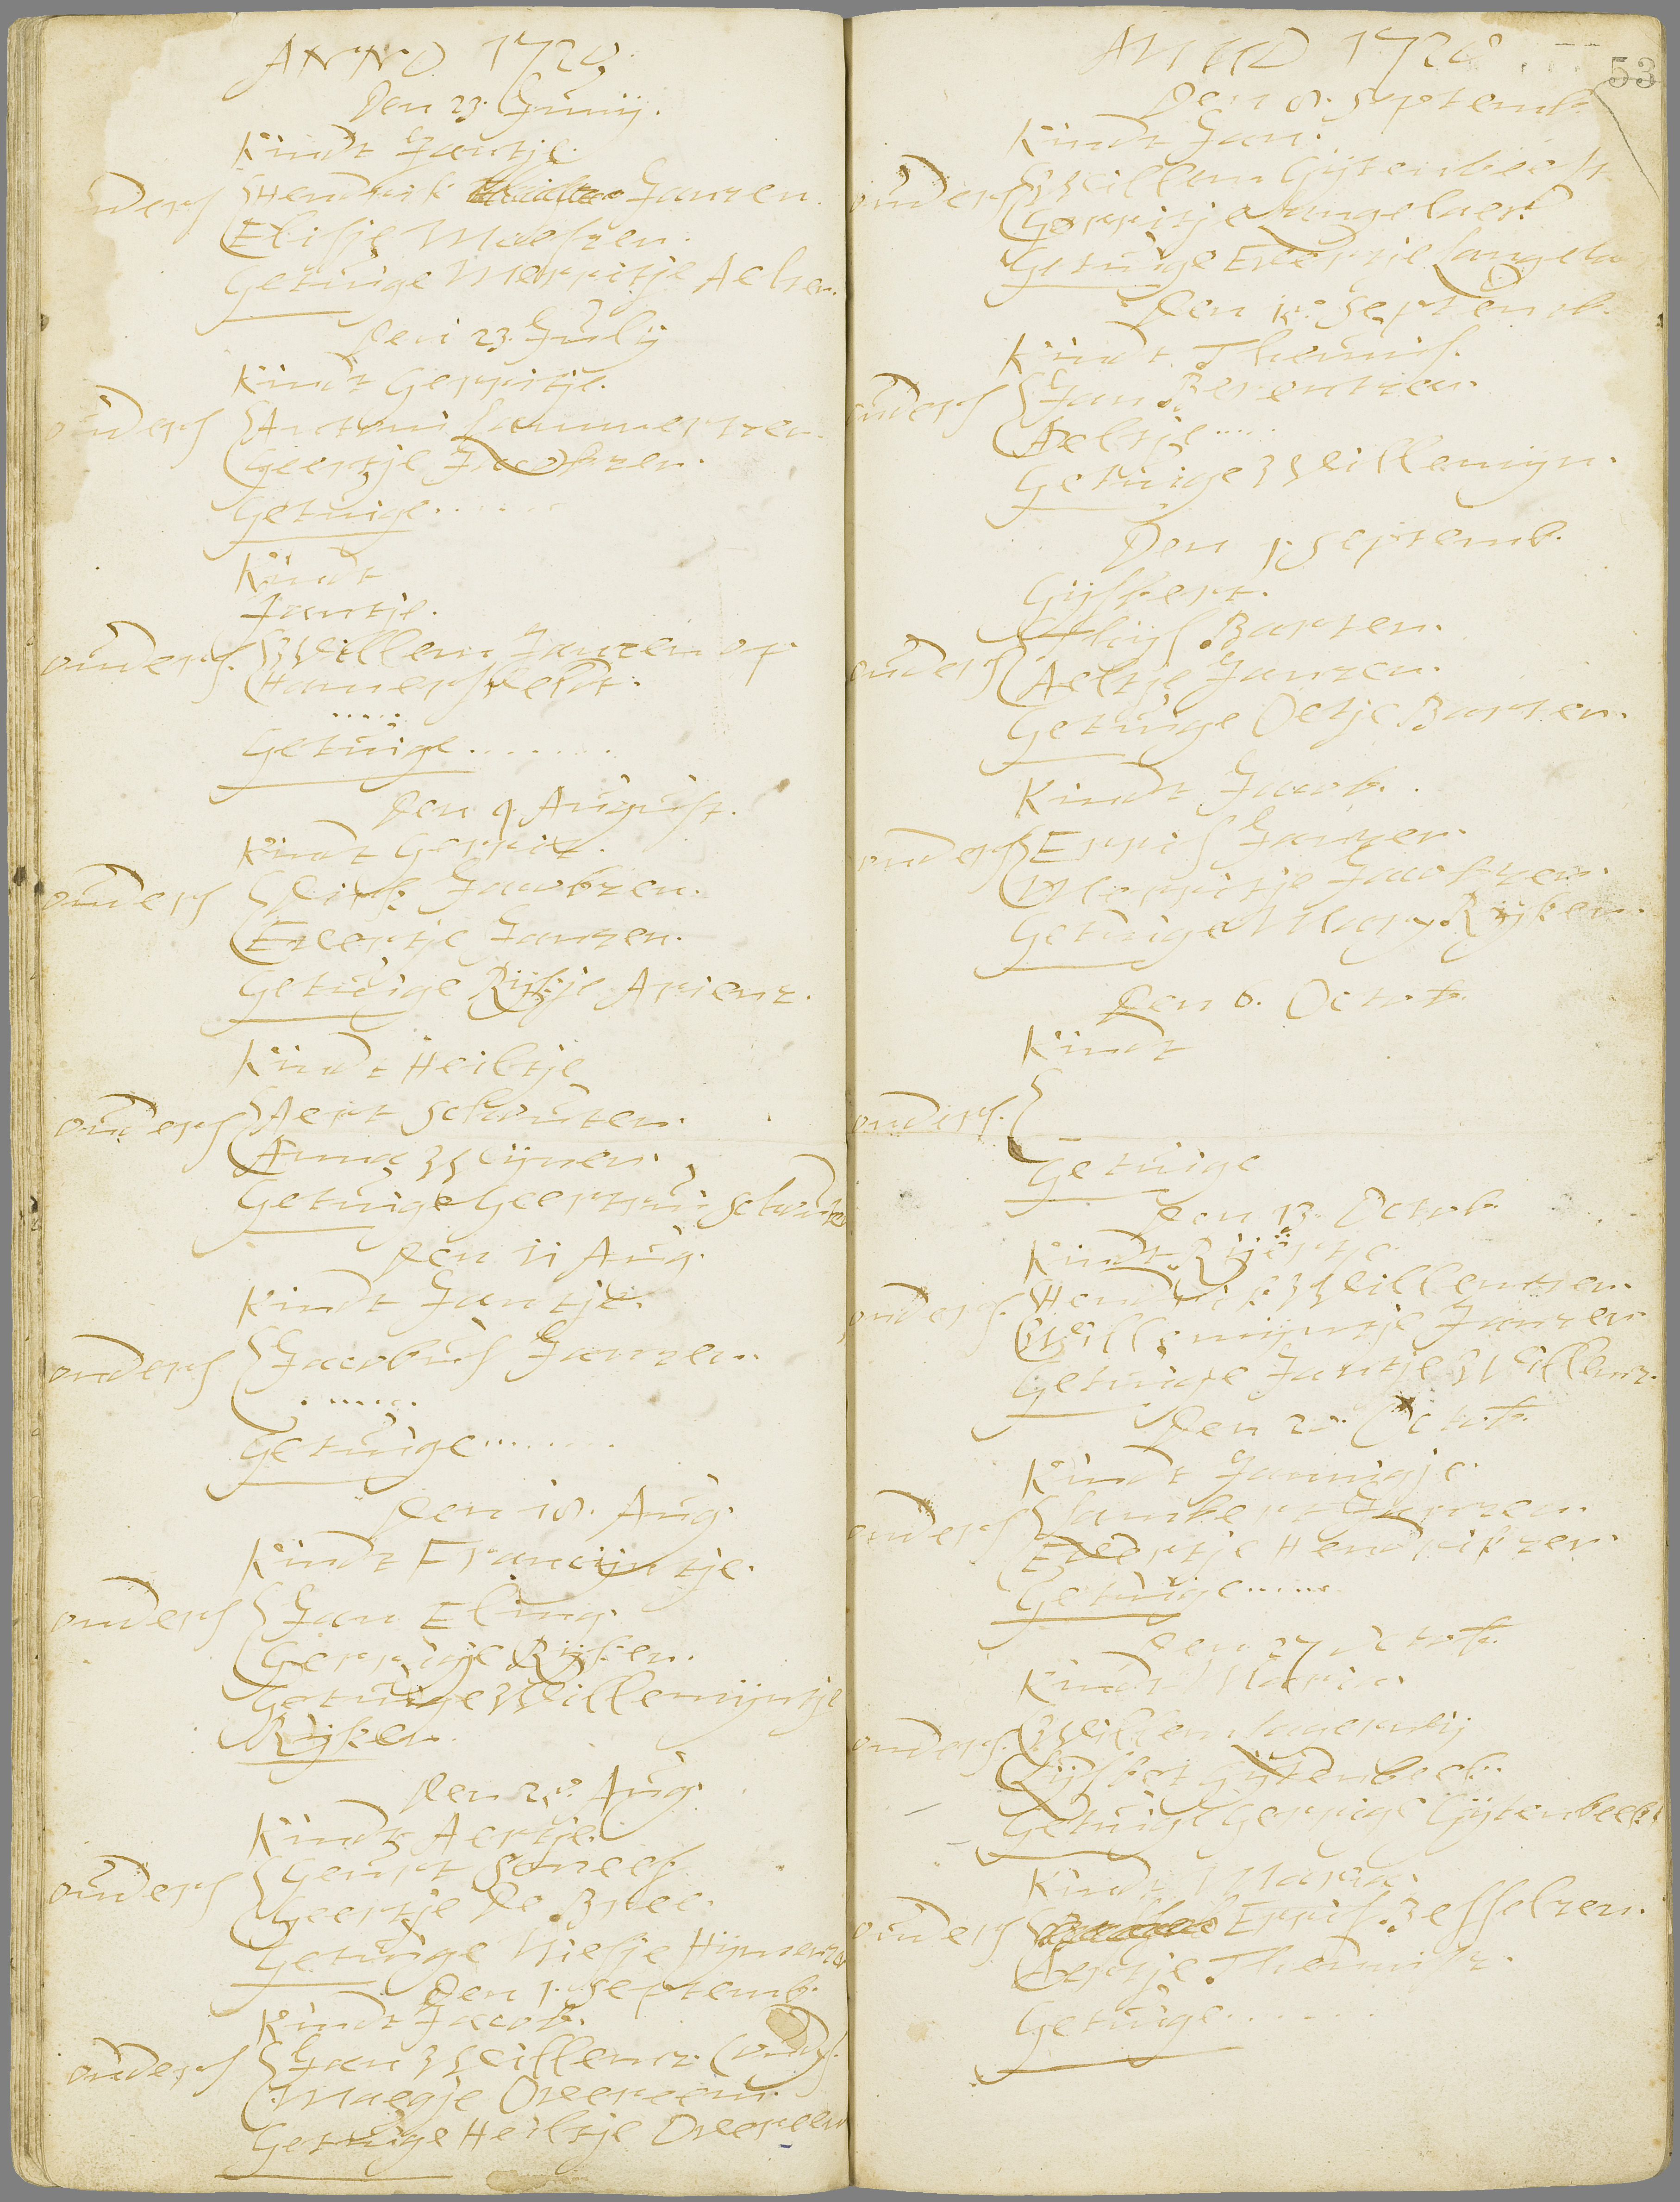 ANNO 1720
Den 23. Junij.
Kindt Jantje.
ouders Hendrik Janzen.
Elisje Maessen.
Getuige Merritje Aelzen.
Den 23. July
Kindt Gerritje.
ouders Antoni Lammertzen.
Geertje Jacobzen.
Getuige......
Kindt
Jantje.
ouders Willem Janzen op
Hamersveldt.
.....
Getuige........
Den 9. August.
Kindt Gerrit.
ouders Dirk Jacobzen.
Evertje Janzen.
Getuige Rijkje Arienz.
Kindt Heiltje
ouders Aert Schouten.
Anna Wijnen.
Getuige Geertrui Schouten
Den 11 Aug.
Kindt Jantje.
ouders Jacobus Janzen.
......
Getuige........
Den 18. Aug.
Kindt Francijntje.
ouders Jan Eling.
Gerrigje Rijken.
Getuige Willemijntje
Rijken.
Den 25. Aug.
Kindt Aertje.
ouders Geurt
Geertje de Bree.
Getuige Niesje Hijmenzen
Den 1. Septemb.
Kindt Jacob.
ouders Jan Willemz.
Maegje Overeem.
Getuige Heiltje Overeem
ANNO 1720
53
Den 8. Septemb.
Kindt Jan.
ouders Willem Gijtenbeek
Gerritje Langelaer
Getuige Evertje Langela
Den 15. Septemb.
Kindt Theunis.
ouders Jan Berentzen.
Aeltje.....
Getuige Willemijn.
Den 1. Septemb.
Gijsbert.
ouders Thijs Barten.
Aeltje Janzen.
Getuige Oetje Barten.
Kindt Jacob.
ouders Erris Janzen.
Merritje Jacobzen.
Getuige Mary Rijken.
Den 6. Octob.
Kindt
ouders.
Getuige
Den 13 Octob.
Kindt Rijertje.
ouders Hendrik Willemzen.
Willemijntje Janzen
Getuige Jantje Willemz.
Den 20. Octob.
Kindt Jannigje.
ouders Lambert Janzen.
Evertje Hendrikzen.
Getuige......
Den 27 Octob.
Kindt Maria
ouders. Willem Lagerweij
Lijsbet Gijtenbeek.
Getuige Gerrigje Gijtenbeek
Kindt Maria.
ouders Erris Besselzen.
Aertje Theunisz.
Getuige.......